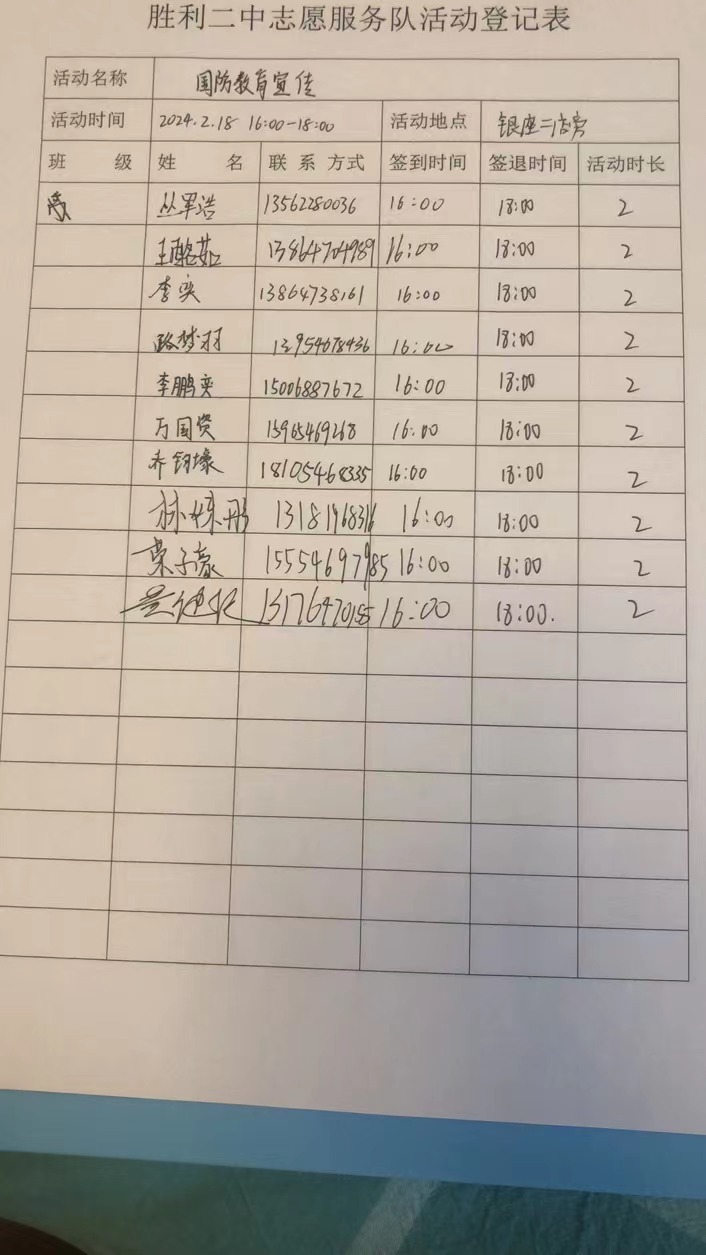 胜利二中志愿服务队活动登记表
活动名称 国防教育宣传
活动时间 2024.2.18 16:00-18:00 活动地点 银座二店旁
班 级 姓 名 联 系 方式 签到时间 签退时间 活动时长
丛军浩 13562280036 16:00 18:00 2
王懿茹 13864704989 16:00 18:00 2
李奕 13864738161 16:00 18:00 2
路梦羽 13954678436 16:00 18:00 2
李鹏奕 15006887672 16:00 18:00 2
万国贤 15965469268 16:00 18:00 2
乔钥壕 18105468335 16:00 18:00 2
13181968316 16:00 18:00 2
栗子豪 15554697985 16:00 18:00 2
13176470155 16:00 18:00. 2